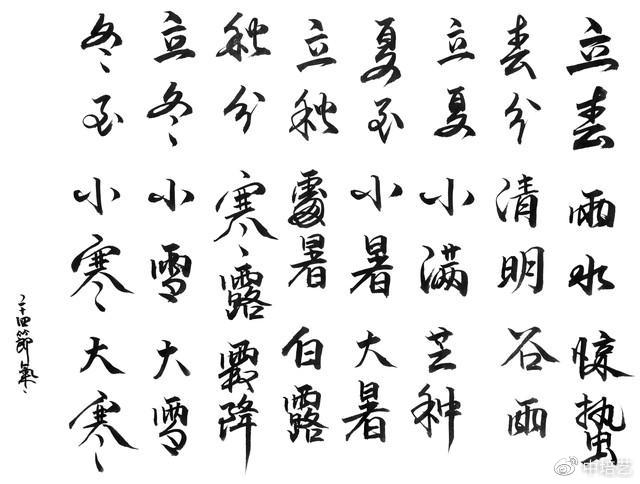 立春 雨水 惊蛰
春分 清明 谷雨
立夏 小满 芒种
夏至 小暑 大暑
立秋 處暑 白露
秋分 寒露 霜降
立冬 小雪 大雪
冬至 小寒 大寒
二十四節氣
中培艺